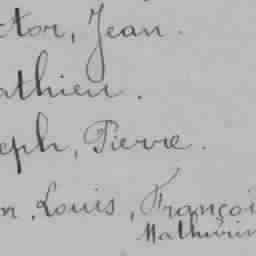 ctor, Jean.
athieu.
eph, Pierre.
n, Louis, Françoi
Mathurin